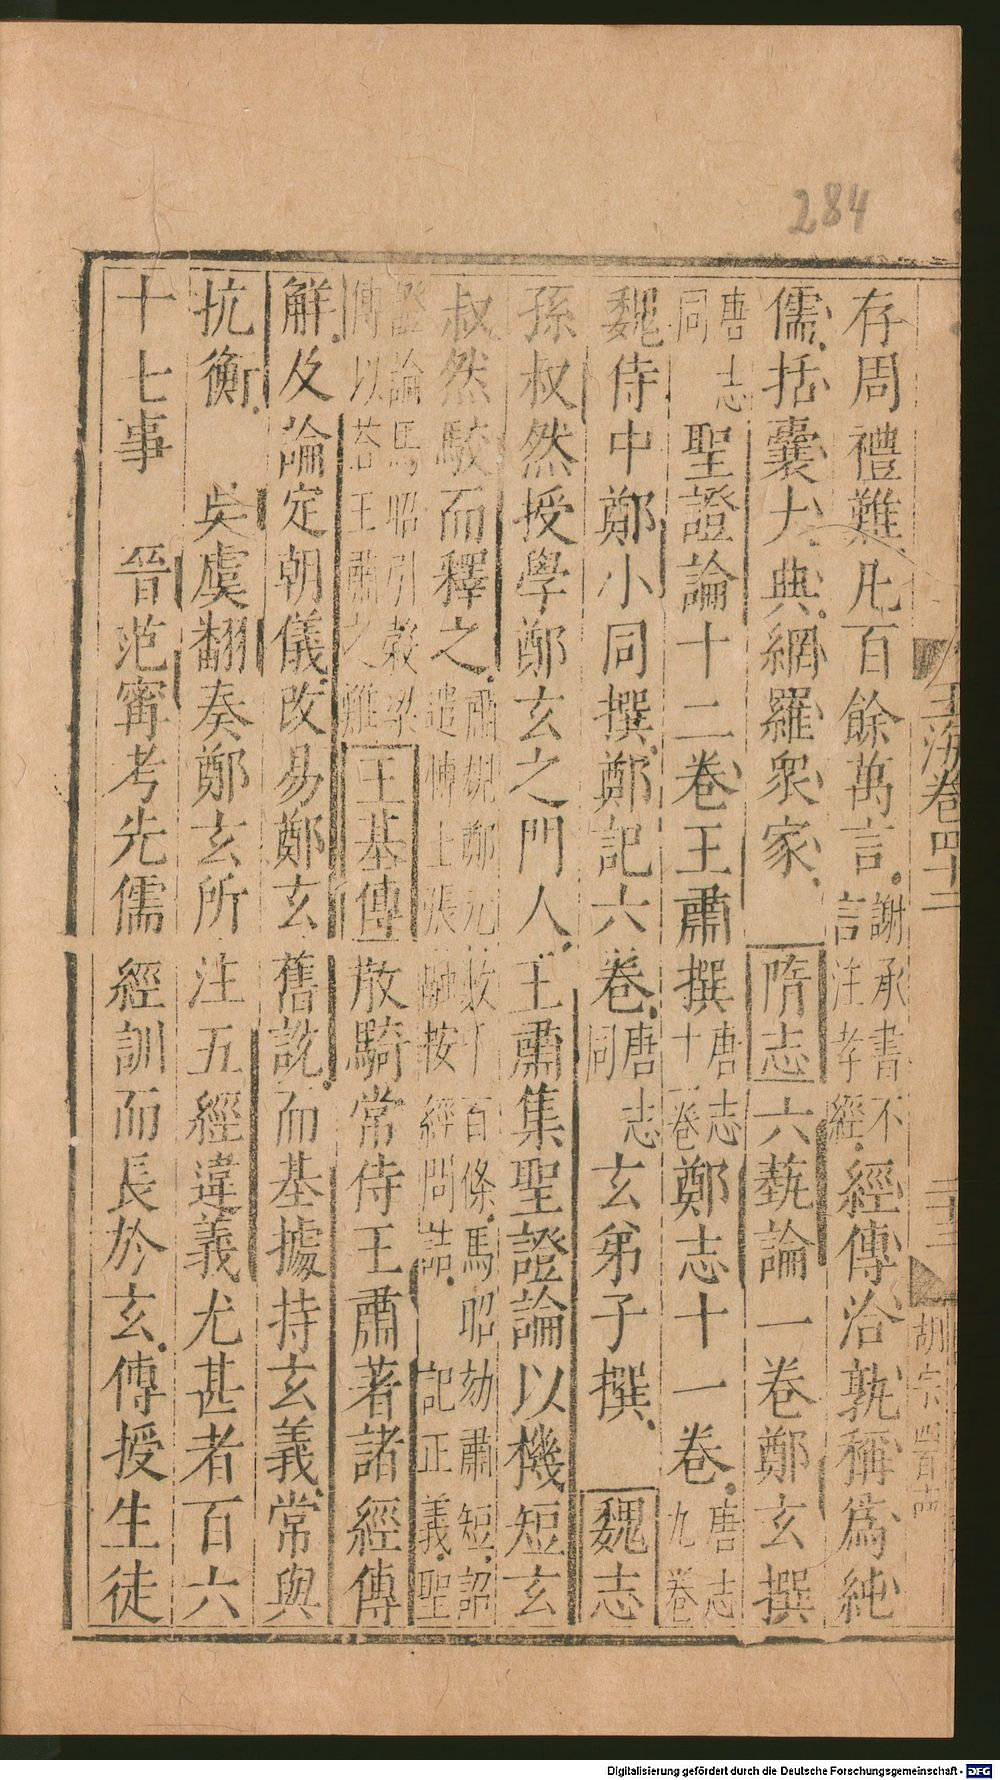 284
存周禮難凡百餘萬言謝承書不言注孝經經傳洽孰稱爲純
儒括囊大典網羅衆家隋志六藝論一卷鄭玄撰
唐志同聖證論十二卷王肅撰唐志十一卷鄭志十一卷唐志九卷
魏侍中鄭小同撰鄭記六卷唐志同玄弟子撰魏志
孫叔然授學鄭玄之門人王肅集聖證論以機短玄
叔然駮而釋之肅規鄭元數千百條馬昭劾肅短詔遣博士張融按經問詰記正義聖
證論馬昭引穀梁傳以荅王肅之難王基傳散騎常侍王肅著諸經傳
解及論定朝儀改易鄭玄舊說而基據持玄義常與
抗衡 吳虞翻奏鄭玄所注五經違義尤甚者百六
十七事 晉范甯考先儒經訓而長於玄傳授生徒
玉海卷四十二
二十三
胡宗
Digitalisierung gefördert durch die Deutsche Forschungsgemeinschaft - DFG